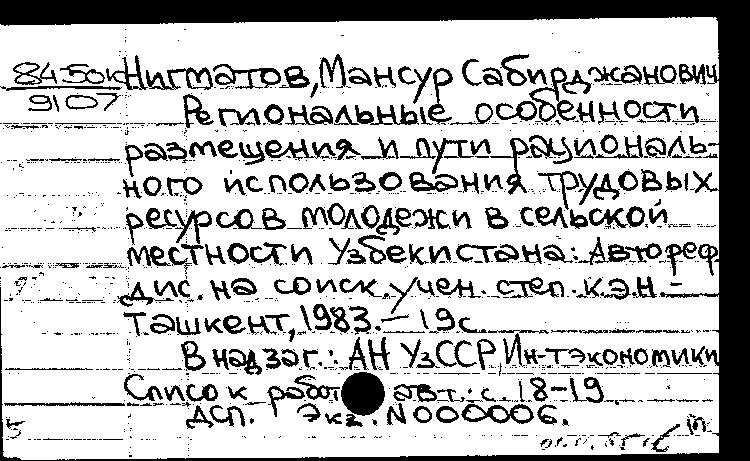 84-50к Нигматов, Мансур Сабирджанович
9107
Региональные особенности
размещения и пути рациональ-
ного использования трудовых
ресурсов молодежи в сельской
местности Узбекистана: Автореф.
дис. на соиск. учен. степ. к.э.н. -
Ташкент, 1983. - 19с.
В надзаг.: АН УзССР, Ин-т экономики
Список работ авт.: с. 18-19
ДСП. Экз. N000006.
5